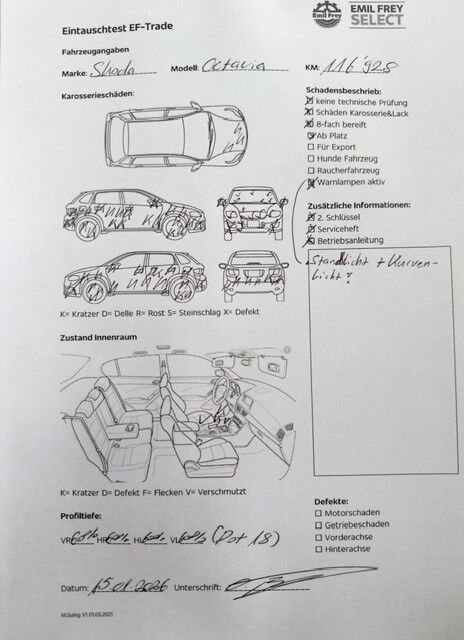 Eintauschtest EF-Trade
EMIL FREY
SELECT
Fahrzeugangaben
Marke: Skoda Modell: Octavia KM: 116'928
Karosserieschäden:
Schadensbeschrieb:
keine technische Prüfung
Schäden Karosserie&Lack
8-fach bereift
Ab Platz
Für Export
Hunde Fahrzeug
Raucherfahrzeug
Warnlampen aktiv
Zusätzliche Informationen:
2. Schlüssel
Serviceheft
Betriebsanleitung
Standlicht + Kurven-
licht?
K= Kratzer D= Delle R= Rost S= Steinschlag X= Defekt
Zustand Innenraum
K= Kratzer D= Defekt F= Flecken V= Verschmutzt
Profiltiefe:
VR 60% HR 60% HL 60% VL 60% (Dot 18)
Defekte:
Motorschaden
Getriebeschaden
Vorderachse
Hinterachse
Datum: 15.01.2026 Unterschrift:
M.Suing V1 01.03.2021